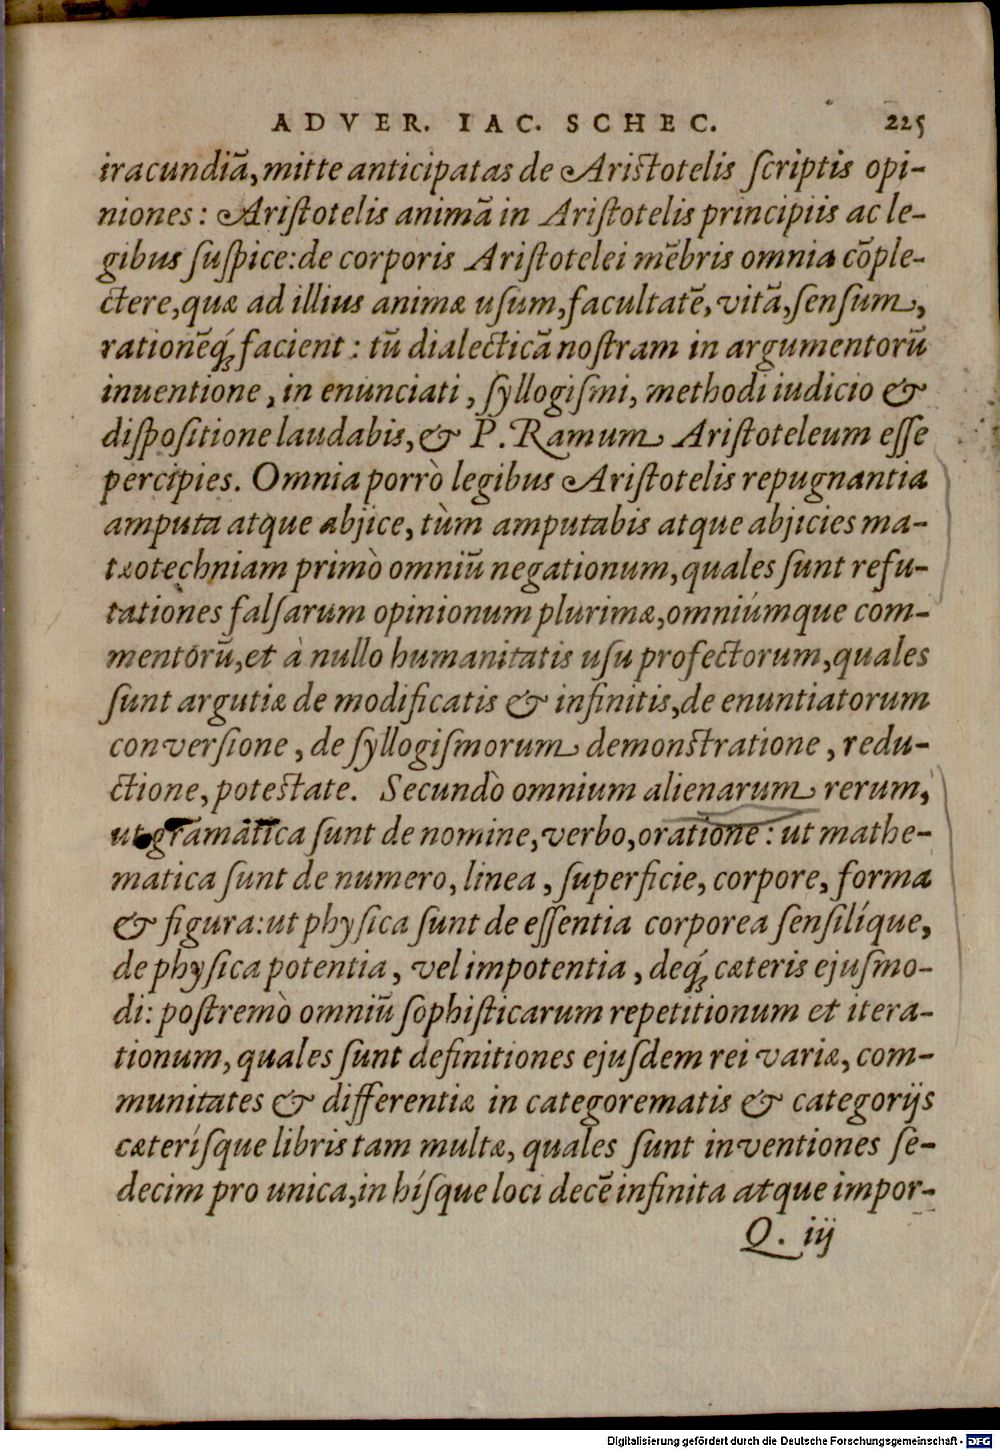 ADVER. IAC. SCHEC. 225
iracundiā, mitte anticipatas de Aristotelis ſcriptis opi-
niones: Ariſtotelis animā in Ariſtotelis principiis ac le-
gibus ſuſpice: de corporis Ariſtotelei mēbris omnia cōple-
ctere, quæ ad illius animæ uſum, facultatē, vitā, ſenſum,
rationēq́ꝫ facient: tū dialecticā noſtram in argumentorū
inuentione, in enunciati, ſyllogiſmi, methodi iudicio &
diſpoſitione laudabis, & P. Ramum Ariſtoteleum eſſe
percipies. Omnia porrò legibus Ariſtotelis repugnantia
amputa atque abjice, tùm amputabis atque abjicies ma-
tæotechniam primò omniū negationum, quales ſunt refu-
tationes falſarum opinionum plurimæ, omniúmque com-
mentorū, et à nullo humanitatis uſu profectorum, quales
ſunt argutiæ de modificatis & infinitis, de enuntiatorum
converſione, de ſyllogiſmorum demonſtratione, redu-
ctione, poteſtate. Secundò omnium alienarum rerum,
ut gramatica ſunt de nomine, verbo, oratione: ut mathe-
matica ſunt de numero, linea, ſuperficie, corpore, forma
& figura: ut phyſica ſunt de eſſentia corporea ſenſilíque,
de phyſica potentia, vel impotentia, deq́ꝫ cæteris ejuſmo-
di: poſtremò omniū ſophiſticarum repetitionum et itera-
tionum, quales ſunt definitiones ejuſdem rei variæ, com-
munitates & differentiæ in categorematis & categorijs
cæteríſque libris tam multæ, quales ſunt inventiones ſe-
decim pro unica, in híſque loci decē infinita atque impor-
Q. iij
Digitalisierung gefördert durch die Deutsche Forschungsgemeinschaft - DFG